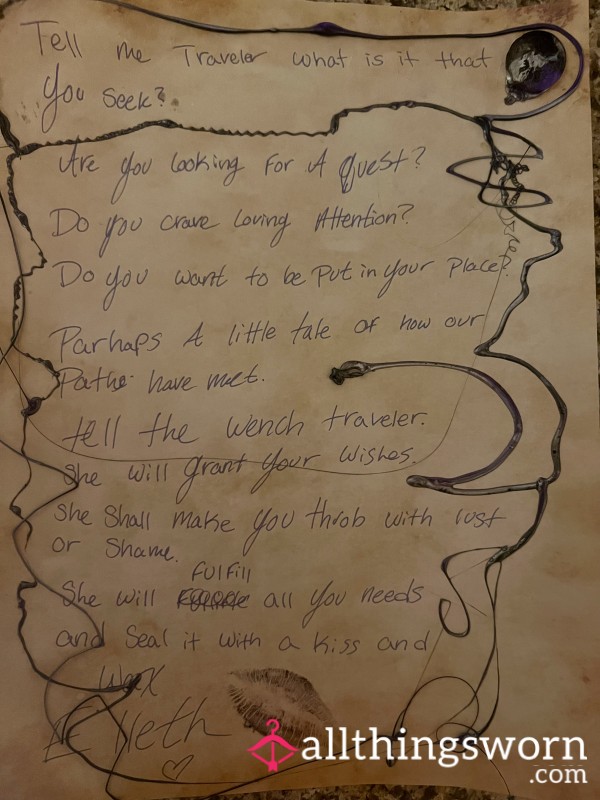 Tell me Traveler what is it that
you seek?
Are you looking For A Quest?
Do you crave loving Attention?
Do you want to be put in your place?
Parhaps A little tale of how our
Paths have met.
tell the wench traveler.
She will grant your wishes.
She Shall make you throb with lust
or Shame.
FulFill
She will all you needs
and Seal it with a kiss and
Wax
allthingsworn
.com